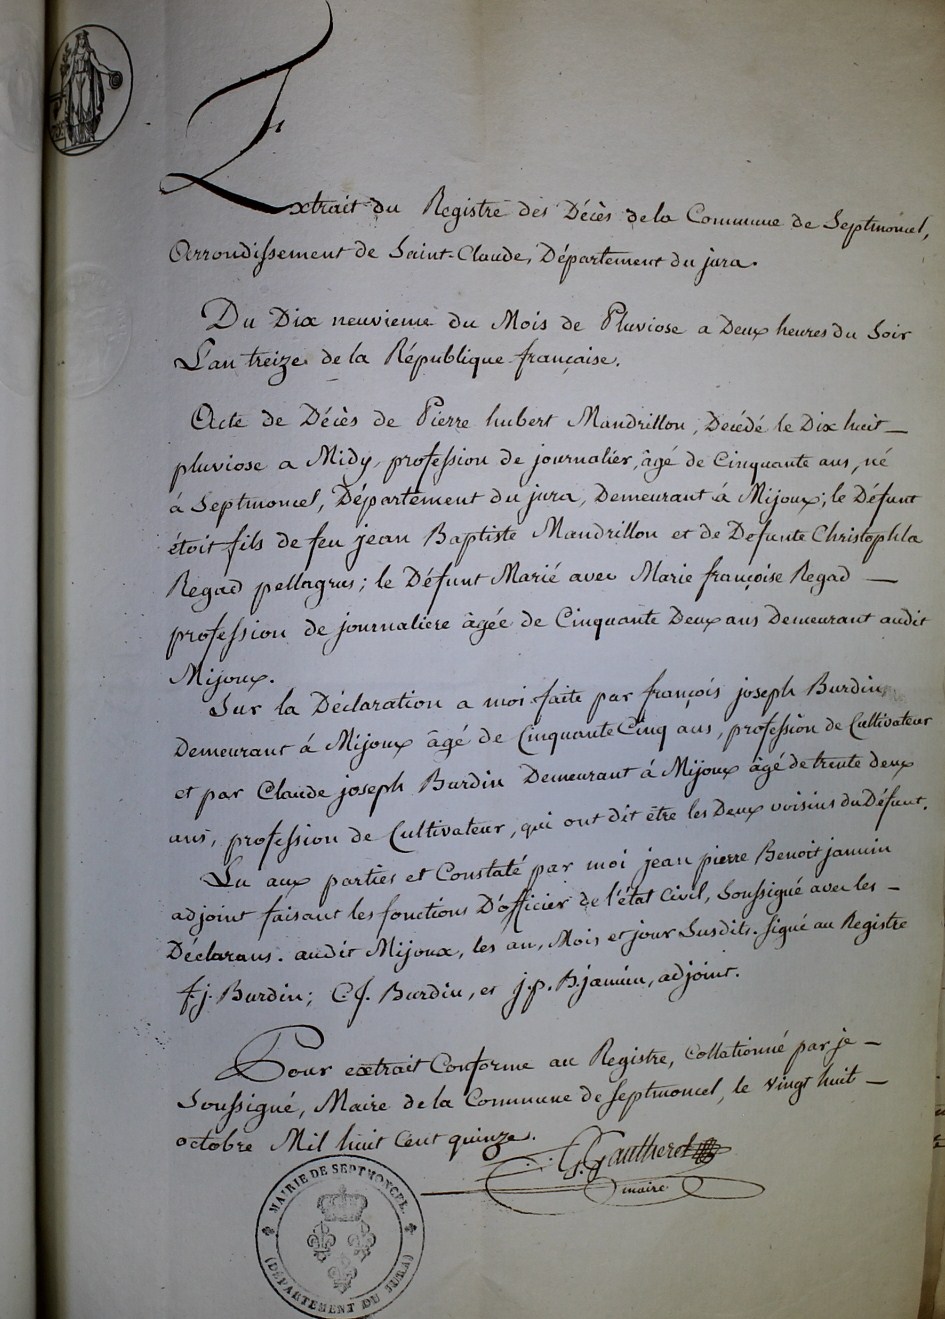 Extrait du Registre des Décès de la Commune de Septmoncel,
Arrondissement de Saint-Claude, Département du jura.
Du Dix neuvieme du Mois de Pluviose a Deux heures du Soir
L'an treize de la République française.
Acte de Décès de Pierre hubert Mandrillon, Décédé le Dix huit
pluviose a Midy, profession de journalier, âgé de Cinquante ans, né
à Septmoncel, Département du jura, Demeurant à Mijoux; le Défunt
étoit fils de feu jean Baptiste Mandrillon et de Defunte Christophla
Regad pellagrus; le Défunt Marié avec Marie françoise Regad
profession de journaliere âgée de Cinquante Deux ans Demeurant audit
Mijoux.
Sur la Déclaration a moi faite par françois joseph Burdin,
Demeurant à Mijoux âgé de Cinquante Cinq ans, profession de Cultivateur
et par Claude joseph Burdin Demeurant à Mijoux âgé de trente deux
ans, profession de Cultivateur, qui ont dit être les Deux voisins du Défunt.
Lu aux parties et Constaté par moi jean pierre Benoit janvin
adjoint faisant les fonctions D'officier de l'état Civil, Soussigné avec les
Déclarans. audit Mijoux, les an, Mois et jour Susdits. signé au Registre
f. j. Burdin; C. J. Burdin, et j. p. B. janvin, adjoint.
Pour extrait Conforme au Registre, Collationné par je
Soussigné, Maire de la Commune de Septmoncel, le vingt huit
octobre Mil huit Cent quinze.
G. Gautheret
maire
MAIRIE DE SEPTMONCEL
(DÉPARTEMENT DU JURA)